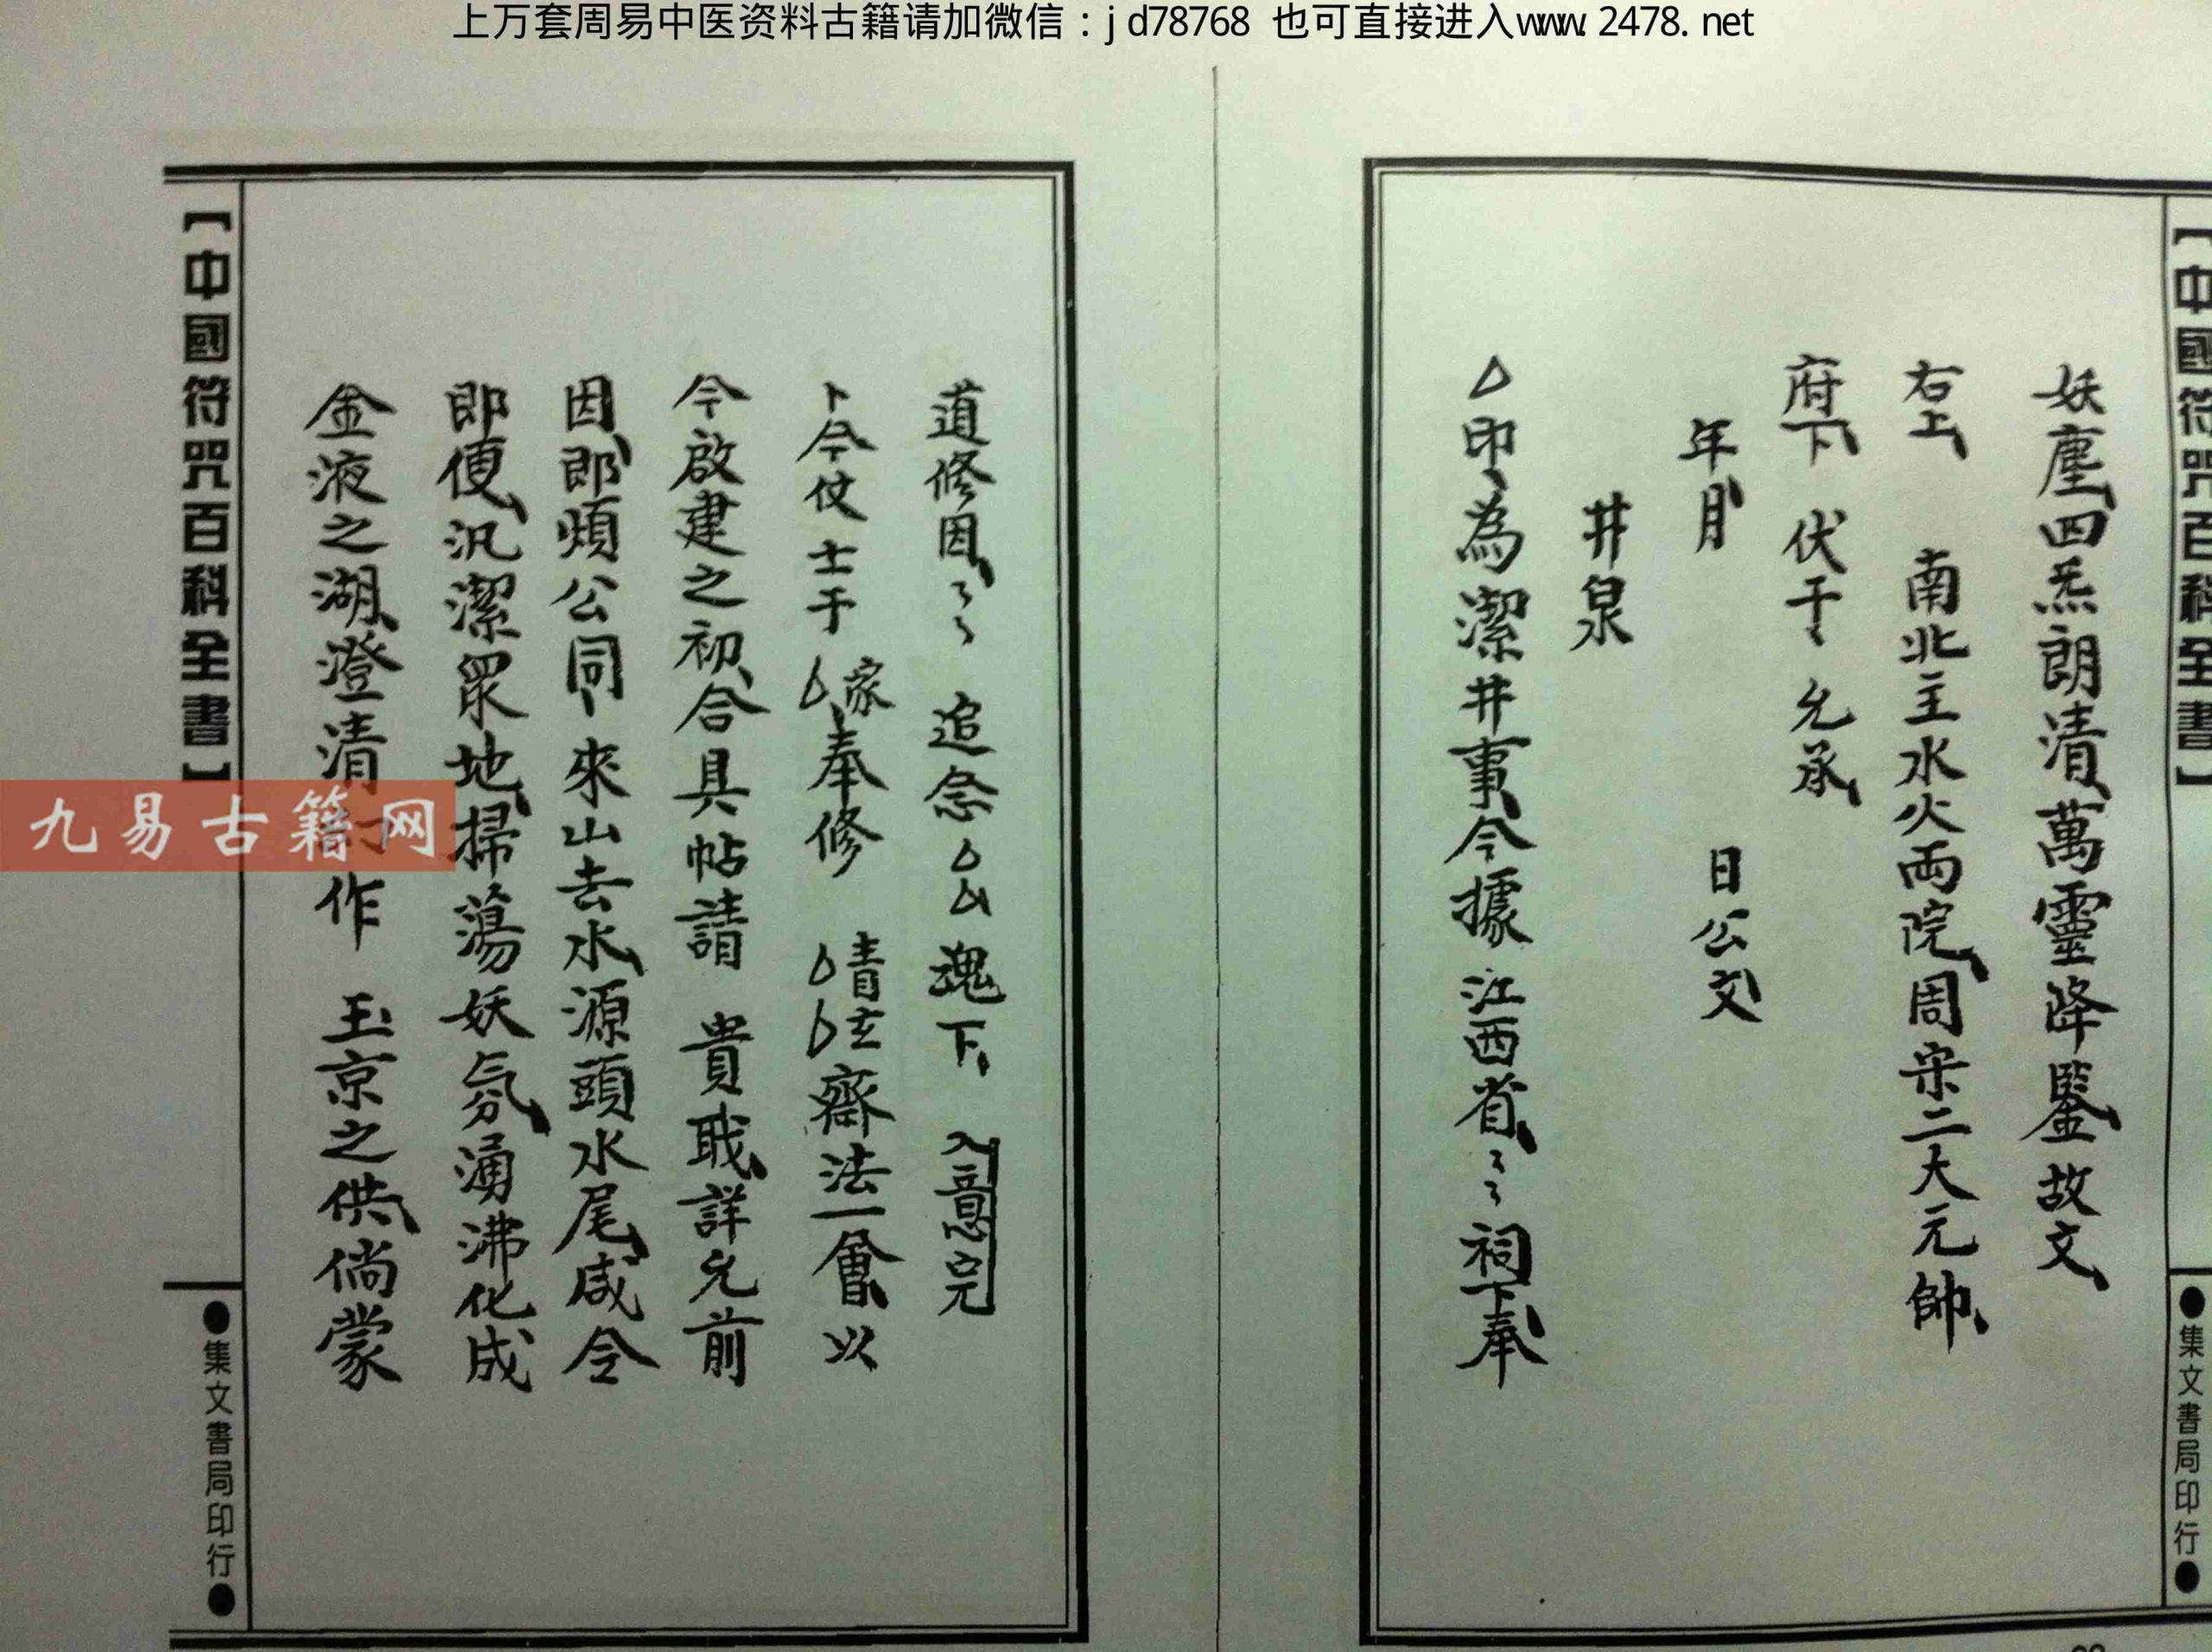 上万套周易中医资料古籍请加微信：jd78768 也可直接进入www.2478.net
【中國符咒百科全書】
●集文書局印行●
妖塵四炁朗清萬靈降鑒故文
右上 南北主水火両院周宋二大元帥
府下 伏干 允承
年月 日公文
井泉
△印為潔井事今據 江西省〻〻祠下奉
道修因〻〻 追念 魂下 入意完
卜今仗士于 家奉修 請 玄齋法一會以
今啟建之初合具帖請 貴戢詳允前
因郎煩公同來山去水源頭水尾咸令
即便汎潔眾地掃蕩妖氛湧沸化成
金液之湖澄清 作 玉京之供倘蒙
【中國符咒百科全書】
●集文書局印行●
九易古籍网